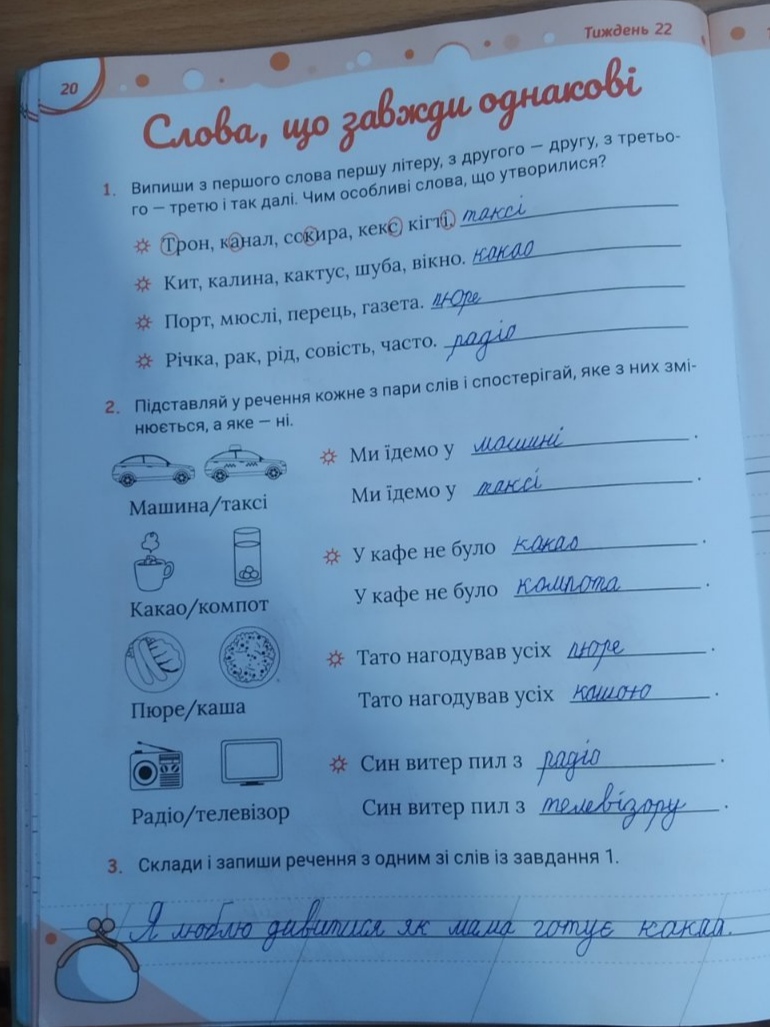 Тиждень 22
20
Слова, що завжди однакові
1. Випиши з першого слова першу літеру, з другого — другу, з третьо-
го — третю і так далі. Чим особливі слова, що утворилися?
Трон, канал, сокира, кекс, кігті. таксі
Кит, калина, кактус, шуба, вікно. какао
Порт, мюслі, перець, газета. пюре
Річка, рак, рід, совість, часто. радіо
2. Підставляй у речення кожне з пари слів і спостерігай, яке з них змі-
нюється, а яке — ні.
Ми їдемо у машині.
Машина/таксі
Ми їдемо у таксі.
У кафе не було какао.
Какао/компот
У кафе не було компота.
Тато нагодував усіх пюре.
Пюре/каша
Тато нагодував усіх кашою.
Син витер пил з радіо.
Радіо/телевізор
Син витер пил з телевізору.
3. Склади і запиши речення з одним зі слів із завдання 1.
Я люблю дивитися як мама готує какао.